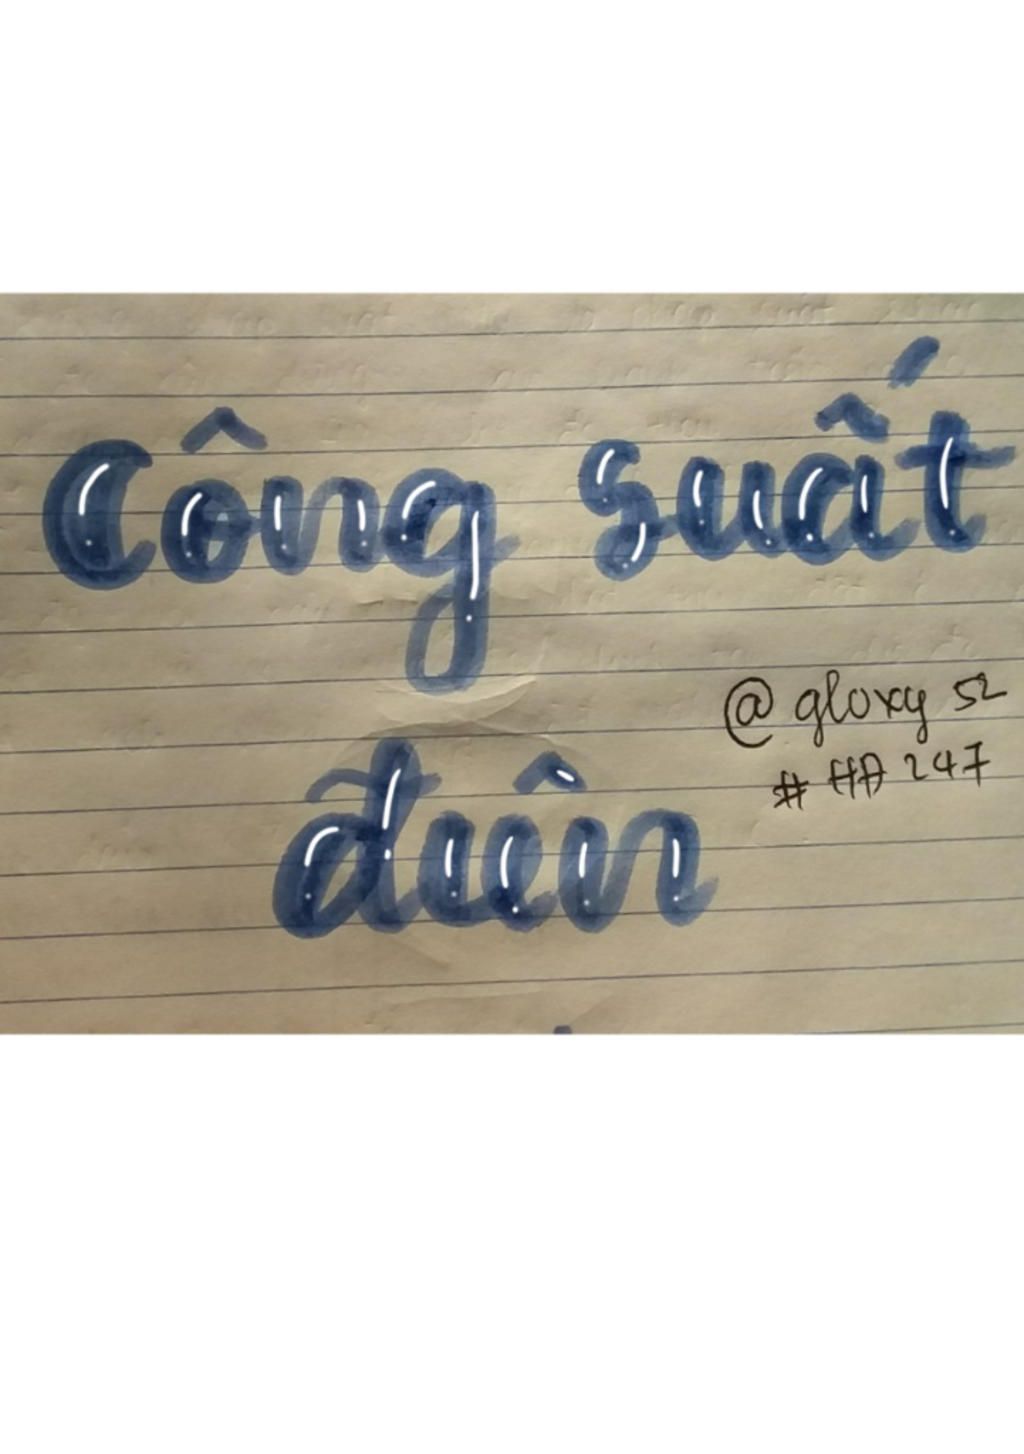 Công suất
điện
@ gloxy 52
# HA 247